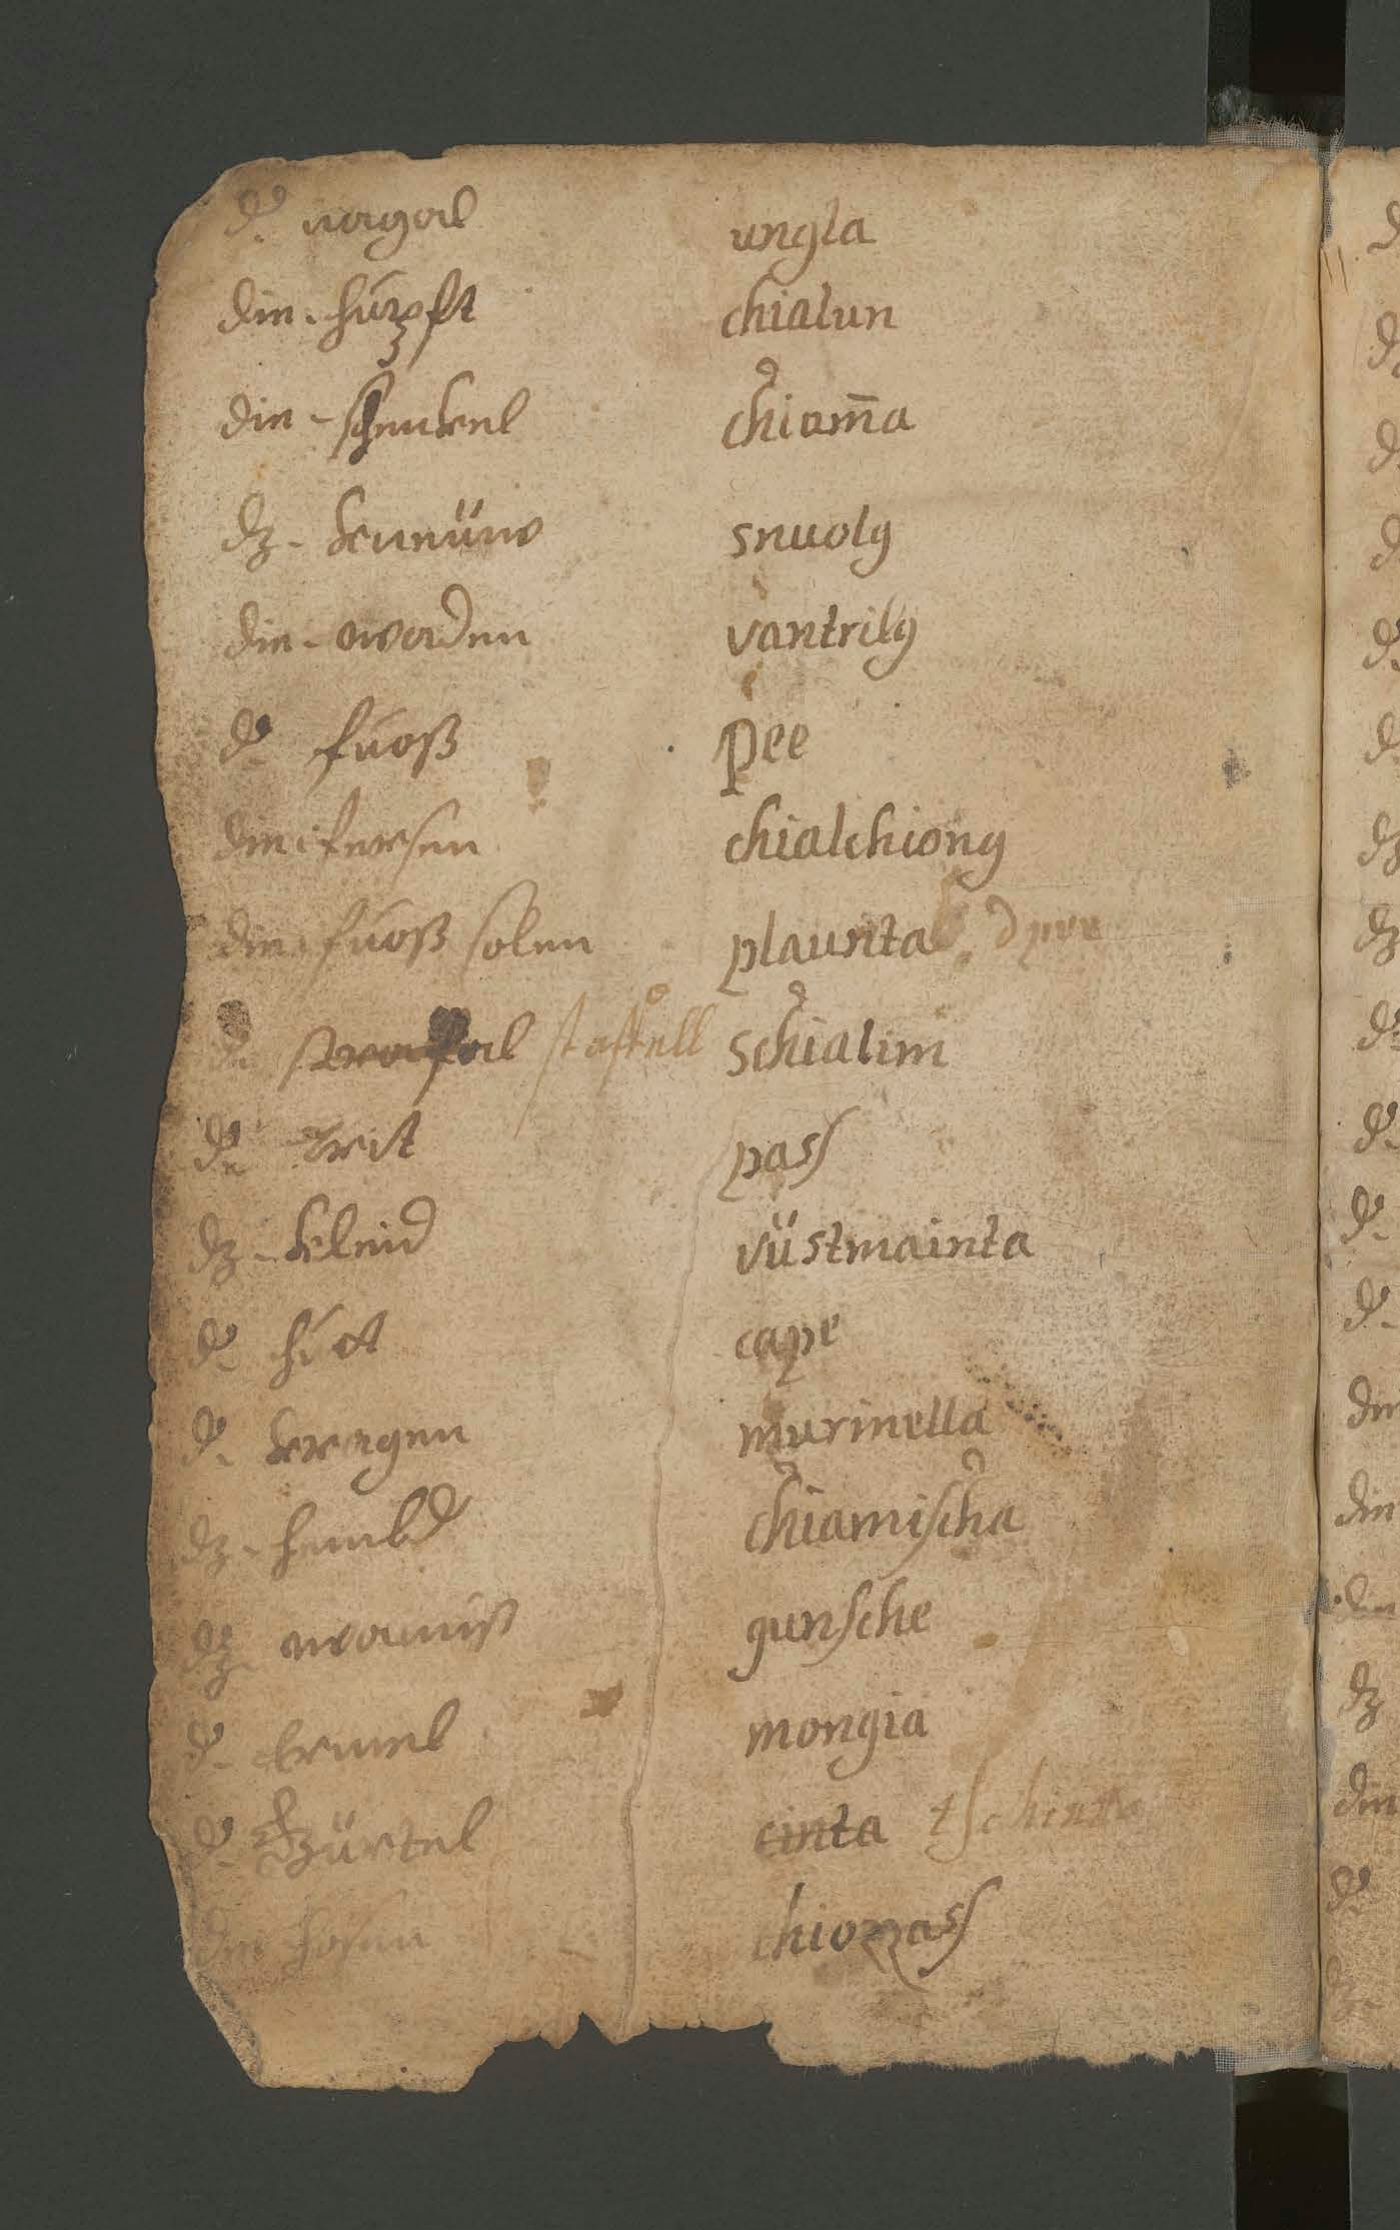 d. nagal ungla
die. hüpft chialun
die - schenkel chiam̄a
dz - kenüuw snuolg
die - waden vantrilg
d. fuoß pee
die fersen chialchiong
die fuoß solen plaunta d pee
d. staffell schialim
d. trit pass
dz - kleid vüstmainta
d. huot cape
d. kragen murinella
dz - hembd chiamischa
dz wamiß gunsche
d. Ermel mongia
d. Gürtel cinta tschinta
die hosen chiozass